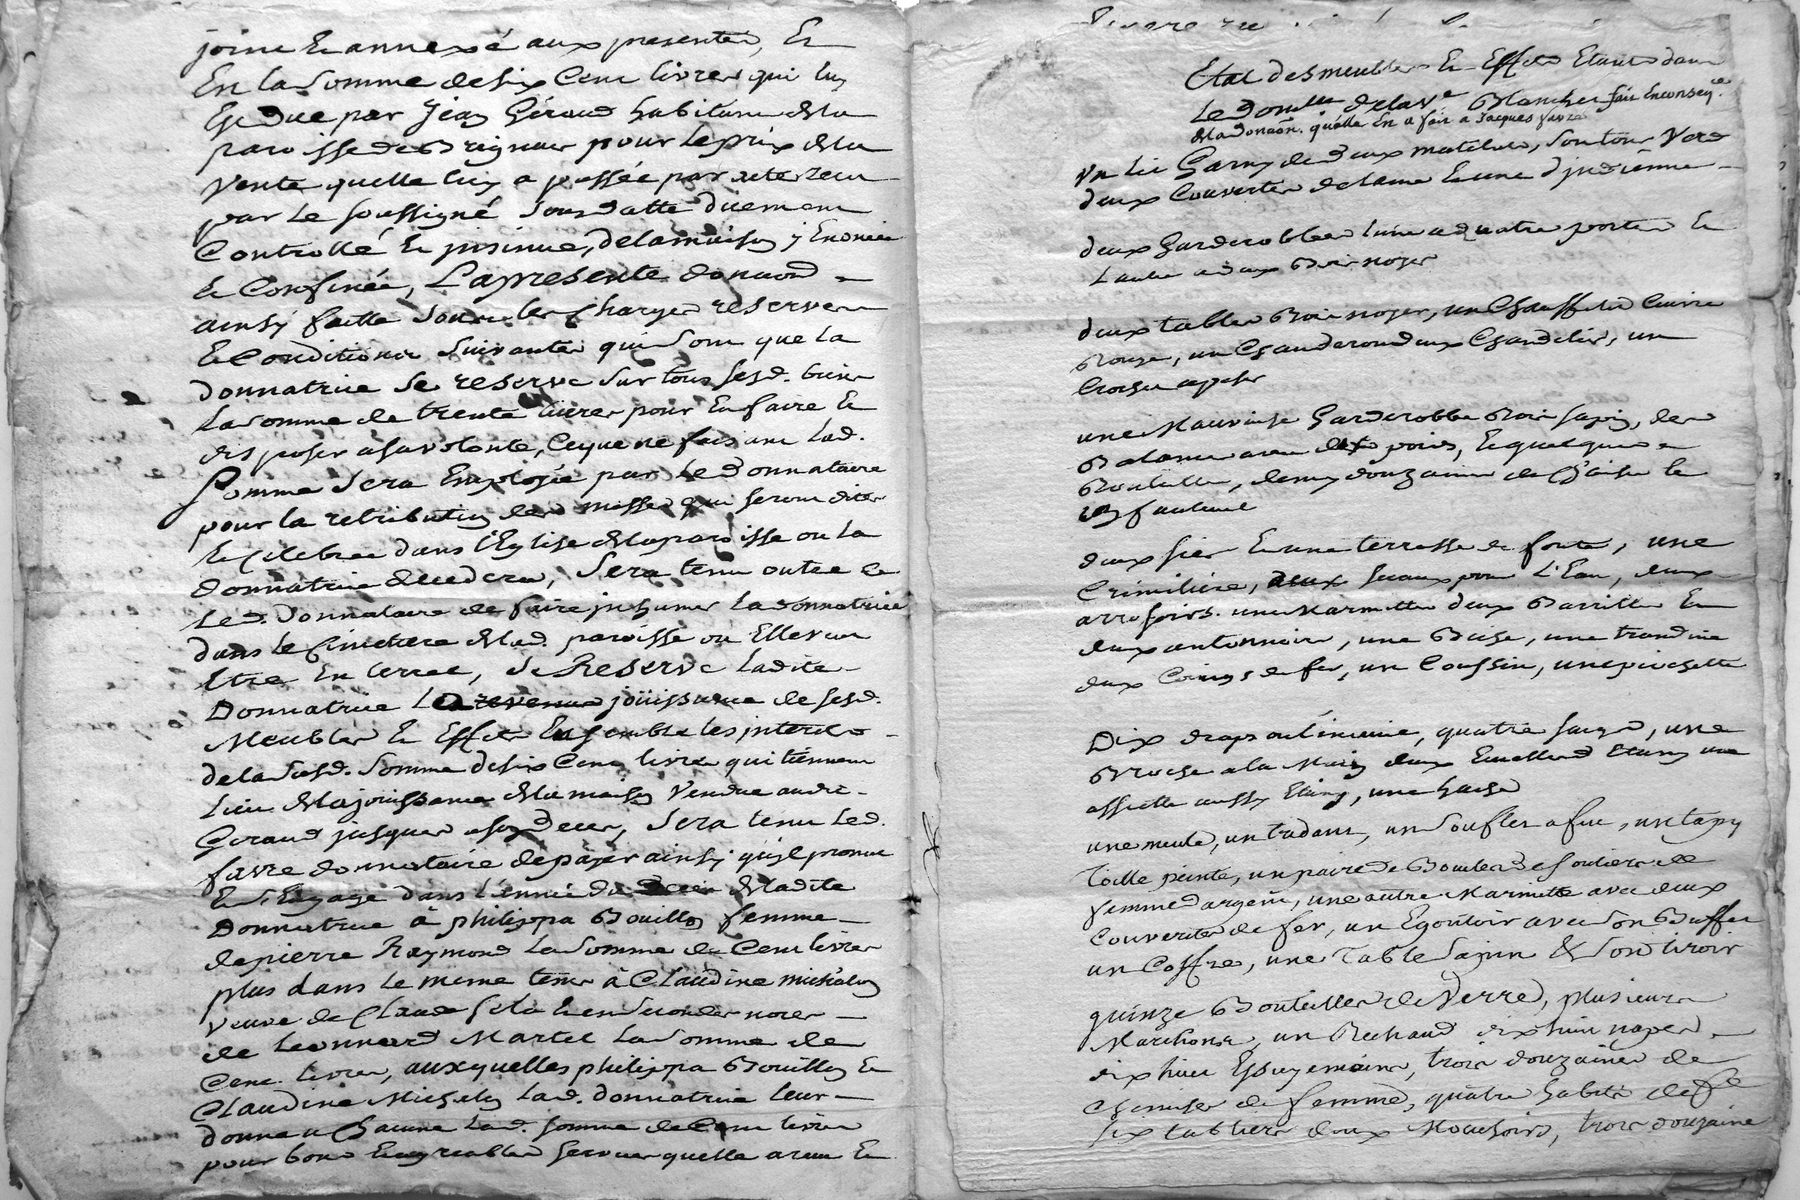 joint et annexé aux presentes, Et
En la somme de six Cent livres qui luy
Est due par Jean Géraud habitant de la
paroisse de Brignais pour le prix de la
vente quelle luy a passée par acte receu
par le soussigné sous datte duement
Controllé et jnsinué, de la maison y Enoncée
et Confinée, La presente donnaon
ainsy faitte sous les charges reserves
et Conditions suivantes qui sont que la
donnatrice se reserve sur tous sesd. biens
la somme de trente livres pour En faire et
disposer a sa volonté, Ce que ne faisant lad.
somme sera Employée par le donnataire
pour la retribution des messes qui seront dites
et Celebrées dans l'Eglise de la paroisse ou la
donnatrice decedera, sera tenu outre ce
led. donnataire de faire jnhumer la donnatrice
dans le Cimetiere de lad. paroisse ou Elle veut
Etre En terrée, se Reserve ladite
Donnatrice la jöuissance de sesd.
Meubles et Effets Ensemble les jnterets
de la susd. somme de six Cent livres qui tiennent
lieu de la jouissance de la maison vendue audit
Geraud jusques a son deces, sera tenu led.
favre donnataire de payer ainsy qu'il promet
Et s'Engage dans l'année du deces de ladite
Donnatrice à philippa Bouillon femme
de pierre Raymond la somme de Cent livres
plus dans le meme tems à Claudine michalon
veuve de Claude et en secondes noces
de Leonnard Martel la somme de
Cent livres, auxquelles philippa Bouillon et
Claudine Michalon lad. donnatrice leur
donne a Chacune lad. somme de Cent livres
pour bons et agreables services quelle a receu et
Etat des meubles et Effets Etants dans
Le domlle de la ve Blanchet fait En conseqce
de la donaon. qu'elle En a fait a Jacques favre
un lit Garny de deux matelats, son tour verd
deux Couvertes de laine et une d'jndienne
deux Garderobbes l'une a quatre portes et
l'autre a deux Bois noyer
deux tables Bois noyer, un Chauffe lit Cuivre
Rouge, un Chauderon deux Chandeliers, un
une Mauvaise Garderobbe Bois sapin, des
Balances avec poids, et quelques
Bouteilles, demy douzaine de Chaises et
un fauteuil
deux et une terrasse de fonte, une
Crimiliere, seaux pour L'Eau, deux
arrosoirs. une Marmitte deux Barrilles Et
deux antonnoirs, une Buse, une
deux Coings de fer, un Coussin, une
Dix draps, quatre, une
Broche a la Main deux Ecuelles d'Etaing une
assiette aussy Etaing, une hache
une meule, un, un souflet a feu, un tapy
Toille peinte, un paire de Boucles de souliers de
femme d'argent, une autre Marmitte avec deux
Couvercles de fer, un Egoutoir avec son Buffet
un Coffre, une Table Sapin & son tiroir
quinze Bouteilles de Verre, plusieurs
un Rechaud dix huit napes
dix huit Essuyemains, trois douzaines de
Chemises de femme, quatre habits de fe
six tabliers deux Mouchoirs, trois douzaine